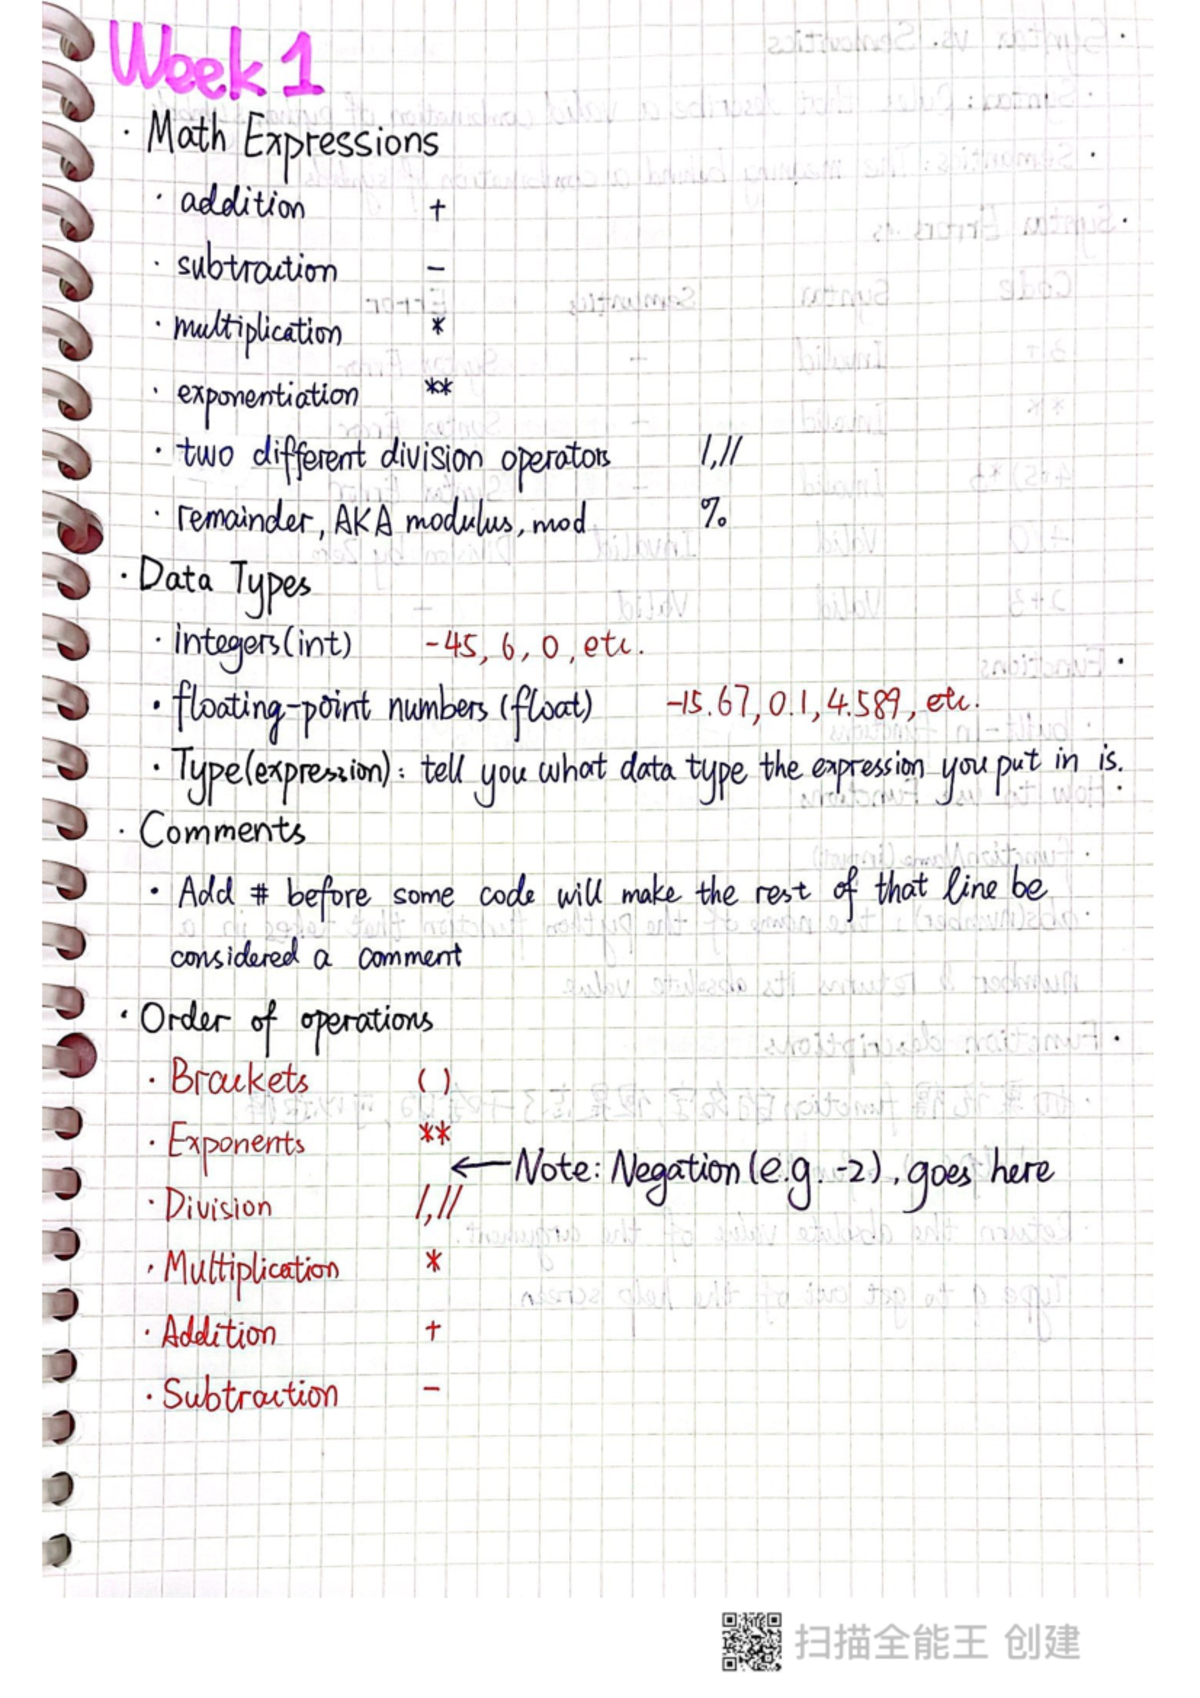 Week 1
· Math Expressions
· addition +
· subtraction −
· multiplication *
· exponentiation **
· two different division operators /,//
· remainder, AKA modulus, mod %
· Data Types
· integers(int) -45, 6, 0, etc.
· floating-point numbers (float) -15.67, 0.1, 4.589, etc.
· Type(expression): tell you what data type the expression you put in is.
· Comments
· Add # before some code will make the rest of that line be
considered a comment
· Order of operations
· Brackets ( )
· Exponents **
← Note: Negation (e.g. -2), goes here
· Division /,//
· Multiplication *
· Addition +
· Subtraction −
扫描全能王 创建